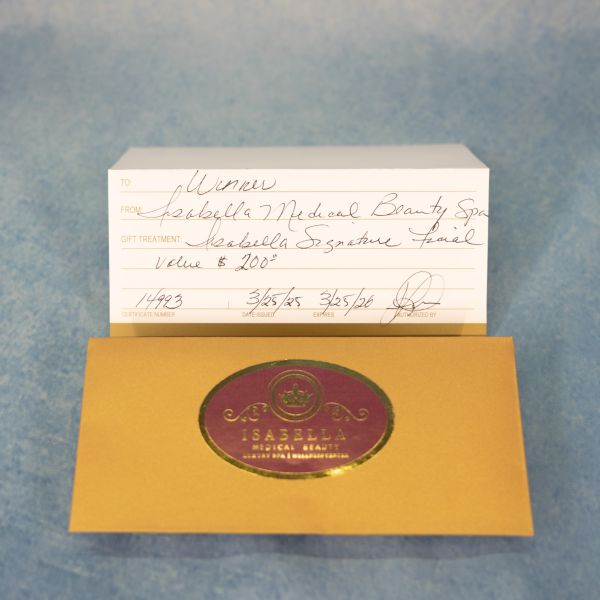 TO: Winner
FROM: Isabella Medical Beauty Spa
GIFT TREATMENT: Isabella Signature Facial
Value $ 200
14923 3/25/25 3/25/26
CERTIFICATE NUMBER DATE ISSUED EXPIRES AUTHORIZED BY
ISABELLA
MEDICAL BEAUTY
LUXURY SPA | WELLNESS CENTER